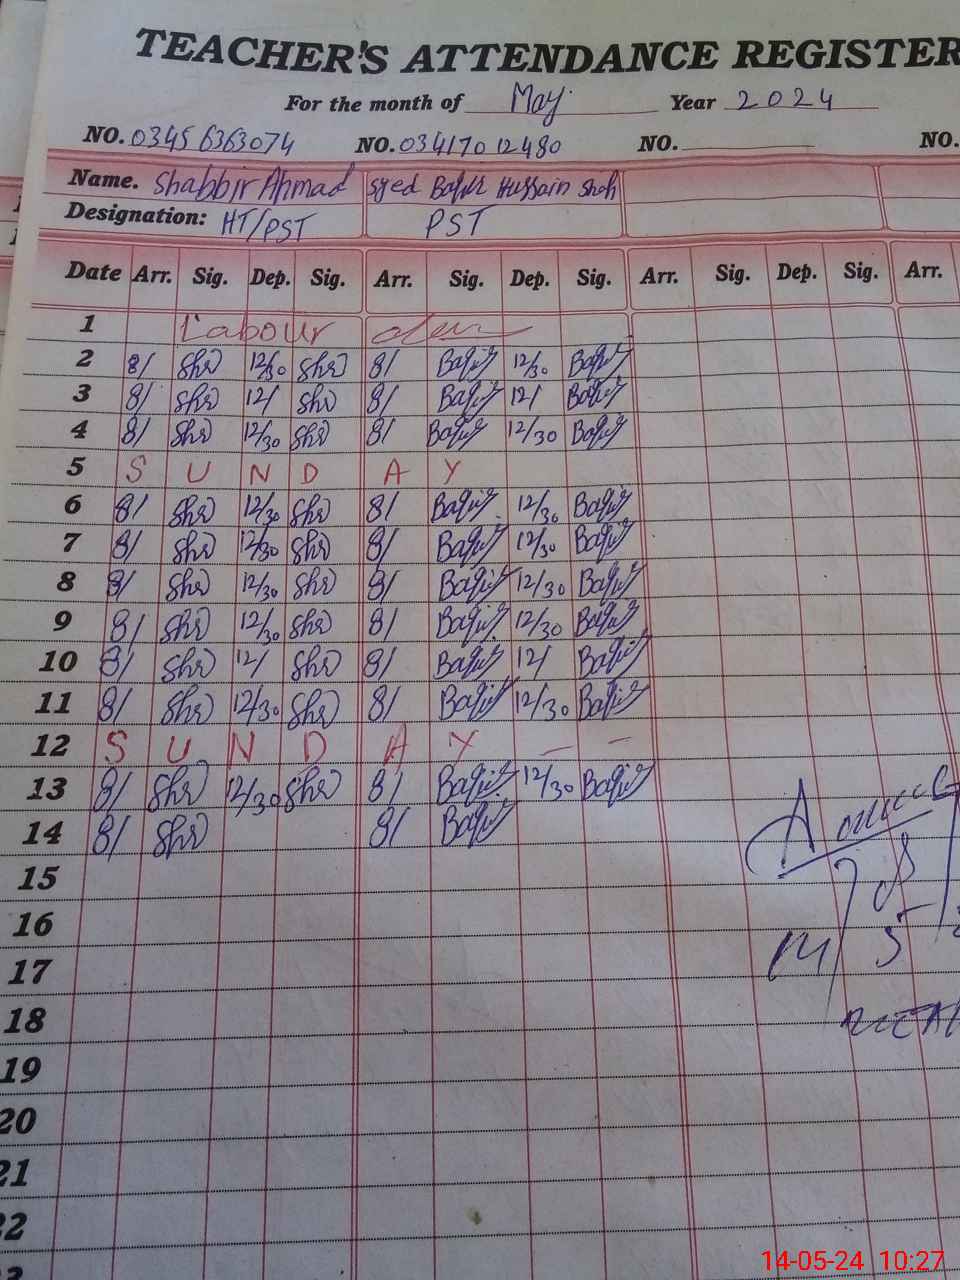 TEACHER'S ATTENDANCE REGISTER
For the month of May Year 2024
NO. 0345 6363074 NO. 03417012480 NO. NO.
Name. Shabbir Ahmad Syed Baqir Hussain Shah
Designation: HT/PST PST
Date Arr. Sig. Dep. Sig. Arr. Sig. Dep. Sig. Arr. Sig. Dep. Sig. Arr.
1 Labour
2 8/ 12/30 8/ Baqir 12/30 Baqir
3 8/ 12/ 8/ Baqir 12/ Baqir
4 8/ 12/30 8/ Baqir 12/30 Baqir
5 S U N D A Y
6 8/ 12/30 8/ Baqir 12/30 Baqir
7 8/ 12/30 8/ Baqir 12/30 Baqir
8 8/ 12/30 8/ Baqir 12/30 Baqir
9 8/ 12/30 8/ Baqir 12/30 Baqir
10 8/ 12/ 8/ Baqir 12/ Baqir
11 8/ 12/30 8/ Baqir 12/30 Baqir
12 S U N D A Y — —
13 8/ 12/30 8/ Baqir 12/30 Baqir
14 8/ 8/ Baqir
15
16
17
18
19
20
21
22
14-05-24 10:27